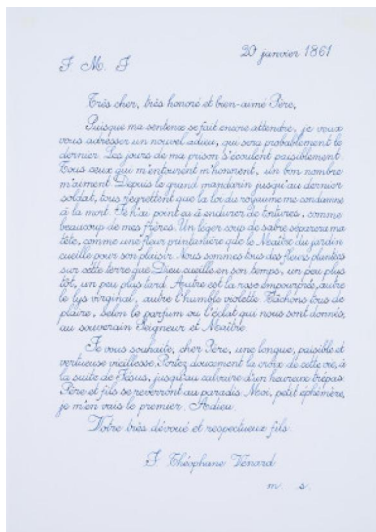 20 janvier 1861
J M. J
Très cher, très honoré et bien-aimé Père,
Puisque ma sentence se fait encore attendre, je veux
vous adresser un nouvel adieu, qui sera probablement le
dernier. Les jours de ma prison s'écoulent paisiblement
Tous ceux qui m'entourent m'honnorent, un bon nombre
m'aiment Depuis le grand mandarin jusqu'au dernier
soldat, tous regrettent que la loi du royaume me condamne
à la mort. Je n'ai point eu à endurer de tortures, comme
beaucoup de mes frères. Un léger coup de sabre séparera ma
tête, comme une fleur printanière que le Maître du jardin
cueille pour son plaisir. Nous sommes tous des fleurs plantées
sur cette terre que Dieu cueille en son temps, un peu plus
tôt, un peu plus tard Autre est la rose empourprée, autre
le lys virginal, autre l'humble violette Tâchons tous de
plaire, selon le parfum ou l'éclat qui nous sont donnés,
au souverain Seigneur et Maître
Je vous souhaite, cher Père, une longue, paisible et
vertueuse vieillesse Portez doucement la croix de cette vie, à
la suite de Jésus, jusqu'au calvaire d'un heureux trépas
Père et fils se reverront au paradis Moi, petit éphémère,
je m'en vais le premier Adieu
Votre très dévoué et respectueux fils
J Théophane Vénard
m. s.